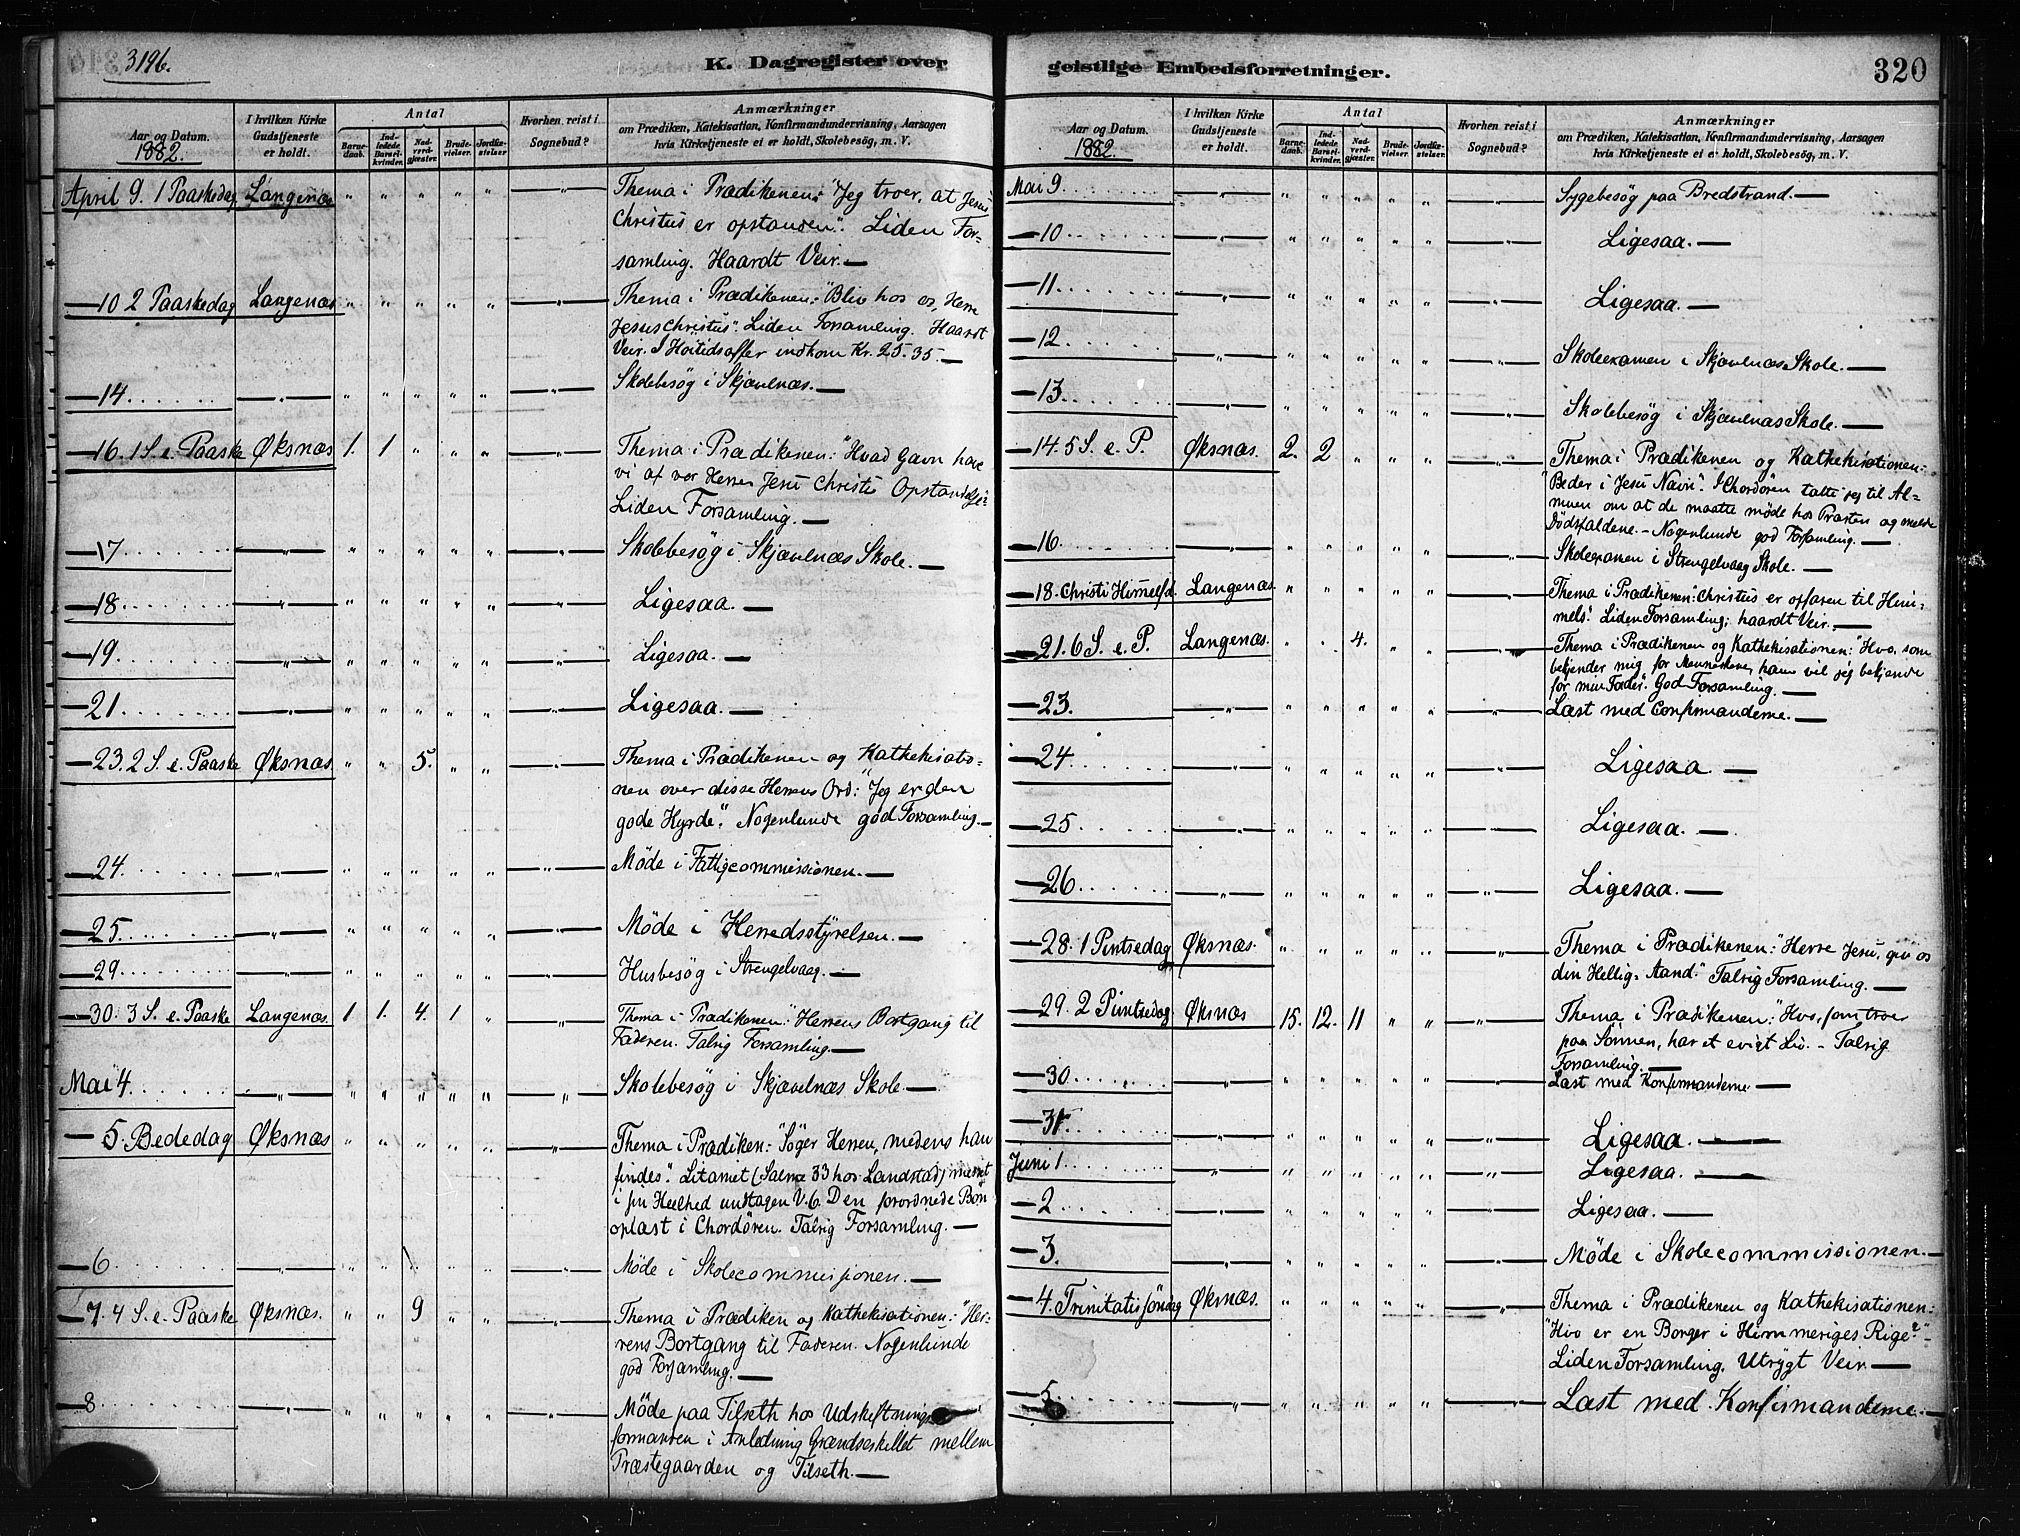 319b.
K. Dagregister over
Aar og Datum.
1882.
I hvilken Kirke
Gudstjeneste
er holdt.
Antal
Barne-
daab.
Ind-
ledede
Barsel-
kvinder.
Nad-
verd-
gjæster.
Brude-
vielser.
Jordfæ-
stelser.
Hvorhen reist i
Sognebud?
Anmærkninger
om Prædiken, Katekisation, Konfirmandundervisning, Aarsagen
hvis Kirketjeneste ei er holdt, Skolebesøg, m. V.
April 9. 1 Paaskedag Langenæs " " " " " — " — Thema i Prædikenen: "Jeg troer, at Jesus
Christus er opstanden". Liden For-
samling. Haardt Veir. —
— 10 2 Paaskedag Langenæs " " " " " — " — Thema i Prædikenen: "Bliv hos os, Herre
Jesus Christus". Liden Forsamling. Haardt
Veir. I Høitidsoffer indkom Kr. 25.35. —
— 14 . . . . . . — " — " " " " " — " — Skolebesøg i Skjævelnæs. —
— 16. 1 S. e. Paaske Øksnæs 1. 1 " " " — " — Thema i Prædikenen: "Hvad Gavn have
vi af vor Herres Jesu Christi Opstandelse"
Liden Forsamling. —
— 17 . . . . . . — " — " " " " " — " — Skolebesøg i Skjævelnæs Skole. —
— 18 . . . . . . — " — " " " " " — " — Ligesaa. —
— 19. . . . . . . — " — " " " " " — " — Ligesaa. —
— 21 . . . . . . — " — " " " " " — " — Ligesaa. —
— 23. 2 S. e. Paaske Øksnæs. " " 5. " " — " — Thema i Prædikenen og Kathekisatio-
nen over disse Herrens Ord: "Jeg er den
gode Hyrde". Nogenlunde god Forsamling. —
— 24. . . . . . . — " — " " " " " — " — Møde i Fattigcommissionen. —
— 25. . . . . . . — " — " " " " " — " — Møde i Herredsstyrelsen. —
— 29 . . . . . . — " — " " " " " — " — Husbesøg i Strengelvaag. —
— 30. 3 S. e. Paaske Langenæs. 1 1. 4. 1 " — " — Thema i Prædikenen: "Herrens Bortgang til
Faderen. Talrig Forsamling. —
Mai 4. . . . . . . — " — " " " " " — " — Skolebesøg i Skjævelnæs Skole. —
— 5. Bededag Øksnæs " " " " " — " — Thema i Prædiken: "Søger Herren, medens han
findes". Litaniet (Salme 33 hos Landstad) messet
i sin Heelhed undtagen V. 6. Den forordnede Bøn
oplæst i Chordøren. Talrig Forsamling. —
— 6 . . . . . . — " — " " " " — " — Møde i Skolecommissionen. —
— 7. 4 S. e. Paaske Øksnæs. " " 9 " " — " — Thema i Prædiken og Kathekisationen: "Her-
rens Bortgang til Faderen. Nogenlunde
god Forsamling. —
— 8 . . . . . . — " — " " " " " — " — Møde paa Tilseth hos Udskiftnings
formanden i Anledning Grændseskillet mellem
Præstegaarden og Tilseth. —
geistlige Embedsforretninger.
320
Aar og Datum.
1882.
I hvilken Kirke
Gudstjeneste
er holdt.
Antal
Barne-
daab.
Ind-
ledede
Barsel-
kvinder.
Nad-
verd-
gjæster.
Brude-
vielser.
Jordfæ-
stelser.
Hvorhen reist i
Sognebud?
Anmærkninger
om Prædiken, Katekisation, Konfirmandundervisning, Aarsagen
hvis Kirketjeneste ei er holdt, Skolebesøg, m. V.
Mai 9. . . . . . . — " — " " " " " — " — Sygebesøg paa Bredstrand. —
— 10 . . . . . . — " — " " " " " — " — Ligesaa. —
— 11 . . . . . . — " — " " " " " — " — Ligesaa. —
— 12. . . . . . . — " — " " " " " — " — Skoleexamen i Skjævelnæs Skole. —
— 13. . . . . . . — " — " " " " " — " — Skolebesøg i Skjævelnæs Skole. —
— 14. 5 S. e. P. Øksnæs. 2. 2 " " " — " — Thema i Prædikenen og Kathekisationen:
"Beder i Jesu Navn". I Chordøren talte jeg til Al-
muen om at de maatte møde hos Præsten og melde
Dødsfaldene. — Nogenlunde god Forsamling. —
— 16. . . . . . . — " — " " " " " — " — Skoleexamen i Strengelvaag Skole. —
— 18. Christi Himmelfd. Langenæs. " " " " " — " — Thema i Prædikenen: Christus er opfaren til Him-
mels". Liden Forsamling; haardt Veir. —
— 21. 6 S. e. P. Langenæs. " " 4. " " — " — Thema i Prædikenen og Kathekisationen: "Hvo, som
bekjender mig for Menneskene, ham vil jeg bekjende
for min Fader". God Forsamling. —
— 23. . . . . . . — " — " " " " " — " — Læst med Confirmanderne. —
— 24. . . . . . . — " — " " " " " — " — Ligesaa —
— 25 . . . . . . — " — " " " " " — " — Ligesaa. —
— 26. . . . . . . — " — " " " " " — " — Ligesaa. —
— 28. 1 Pintsedag Øksnæs. " " " " " — " — Thema i Prædikenen: "Herre Jesu, giv os
din Hellig-Aand." Talrig Forsamling. —
— 29. 2 Pintsedag Øksnæs 15. 12. 11 " " — " — Thema i Prædikenen: "Hvo, som troer
paa Sønnen, har et evigt Liv. — Talrig
Forsamling. —
— 30. . . . . . . — " — " " " " " — " — Læst med Konfirmanderne —
— 31. . . . . . . — " — " " " " " — " — Ligesaa. —
Juni 1. . . . . . . — " — " " " " " — " — Ligesaa. —
— 2 . . . . . . — " — " " " " " — " — Ligesaa. —
— 3. . . . . . . — " — " " " " " — " — Møde i Skolecommissionen. —
— 4. Trinitatis søndag Øksnæs. " " " " " — " — Thema i Prædikenen og Kathekisationen:
"Hvo er en Borger i Himmeriges Rige?" —
Liden Forsamling. Utrygt Veir —
— 5. . . . . . . — " — " " " " " — " — Læst med Konfirmanderne. —